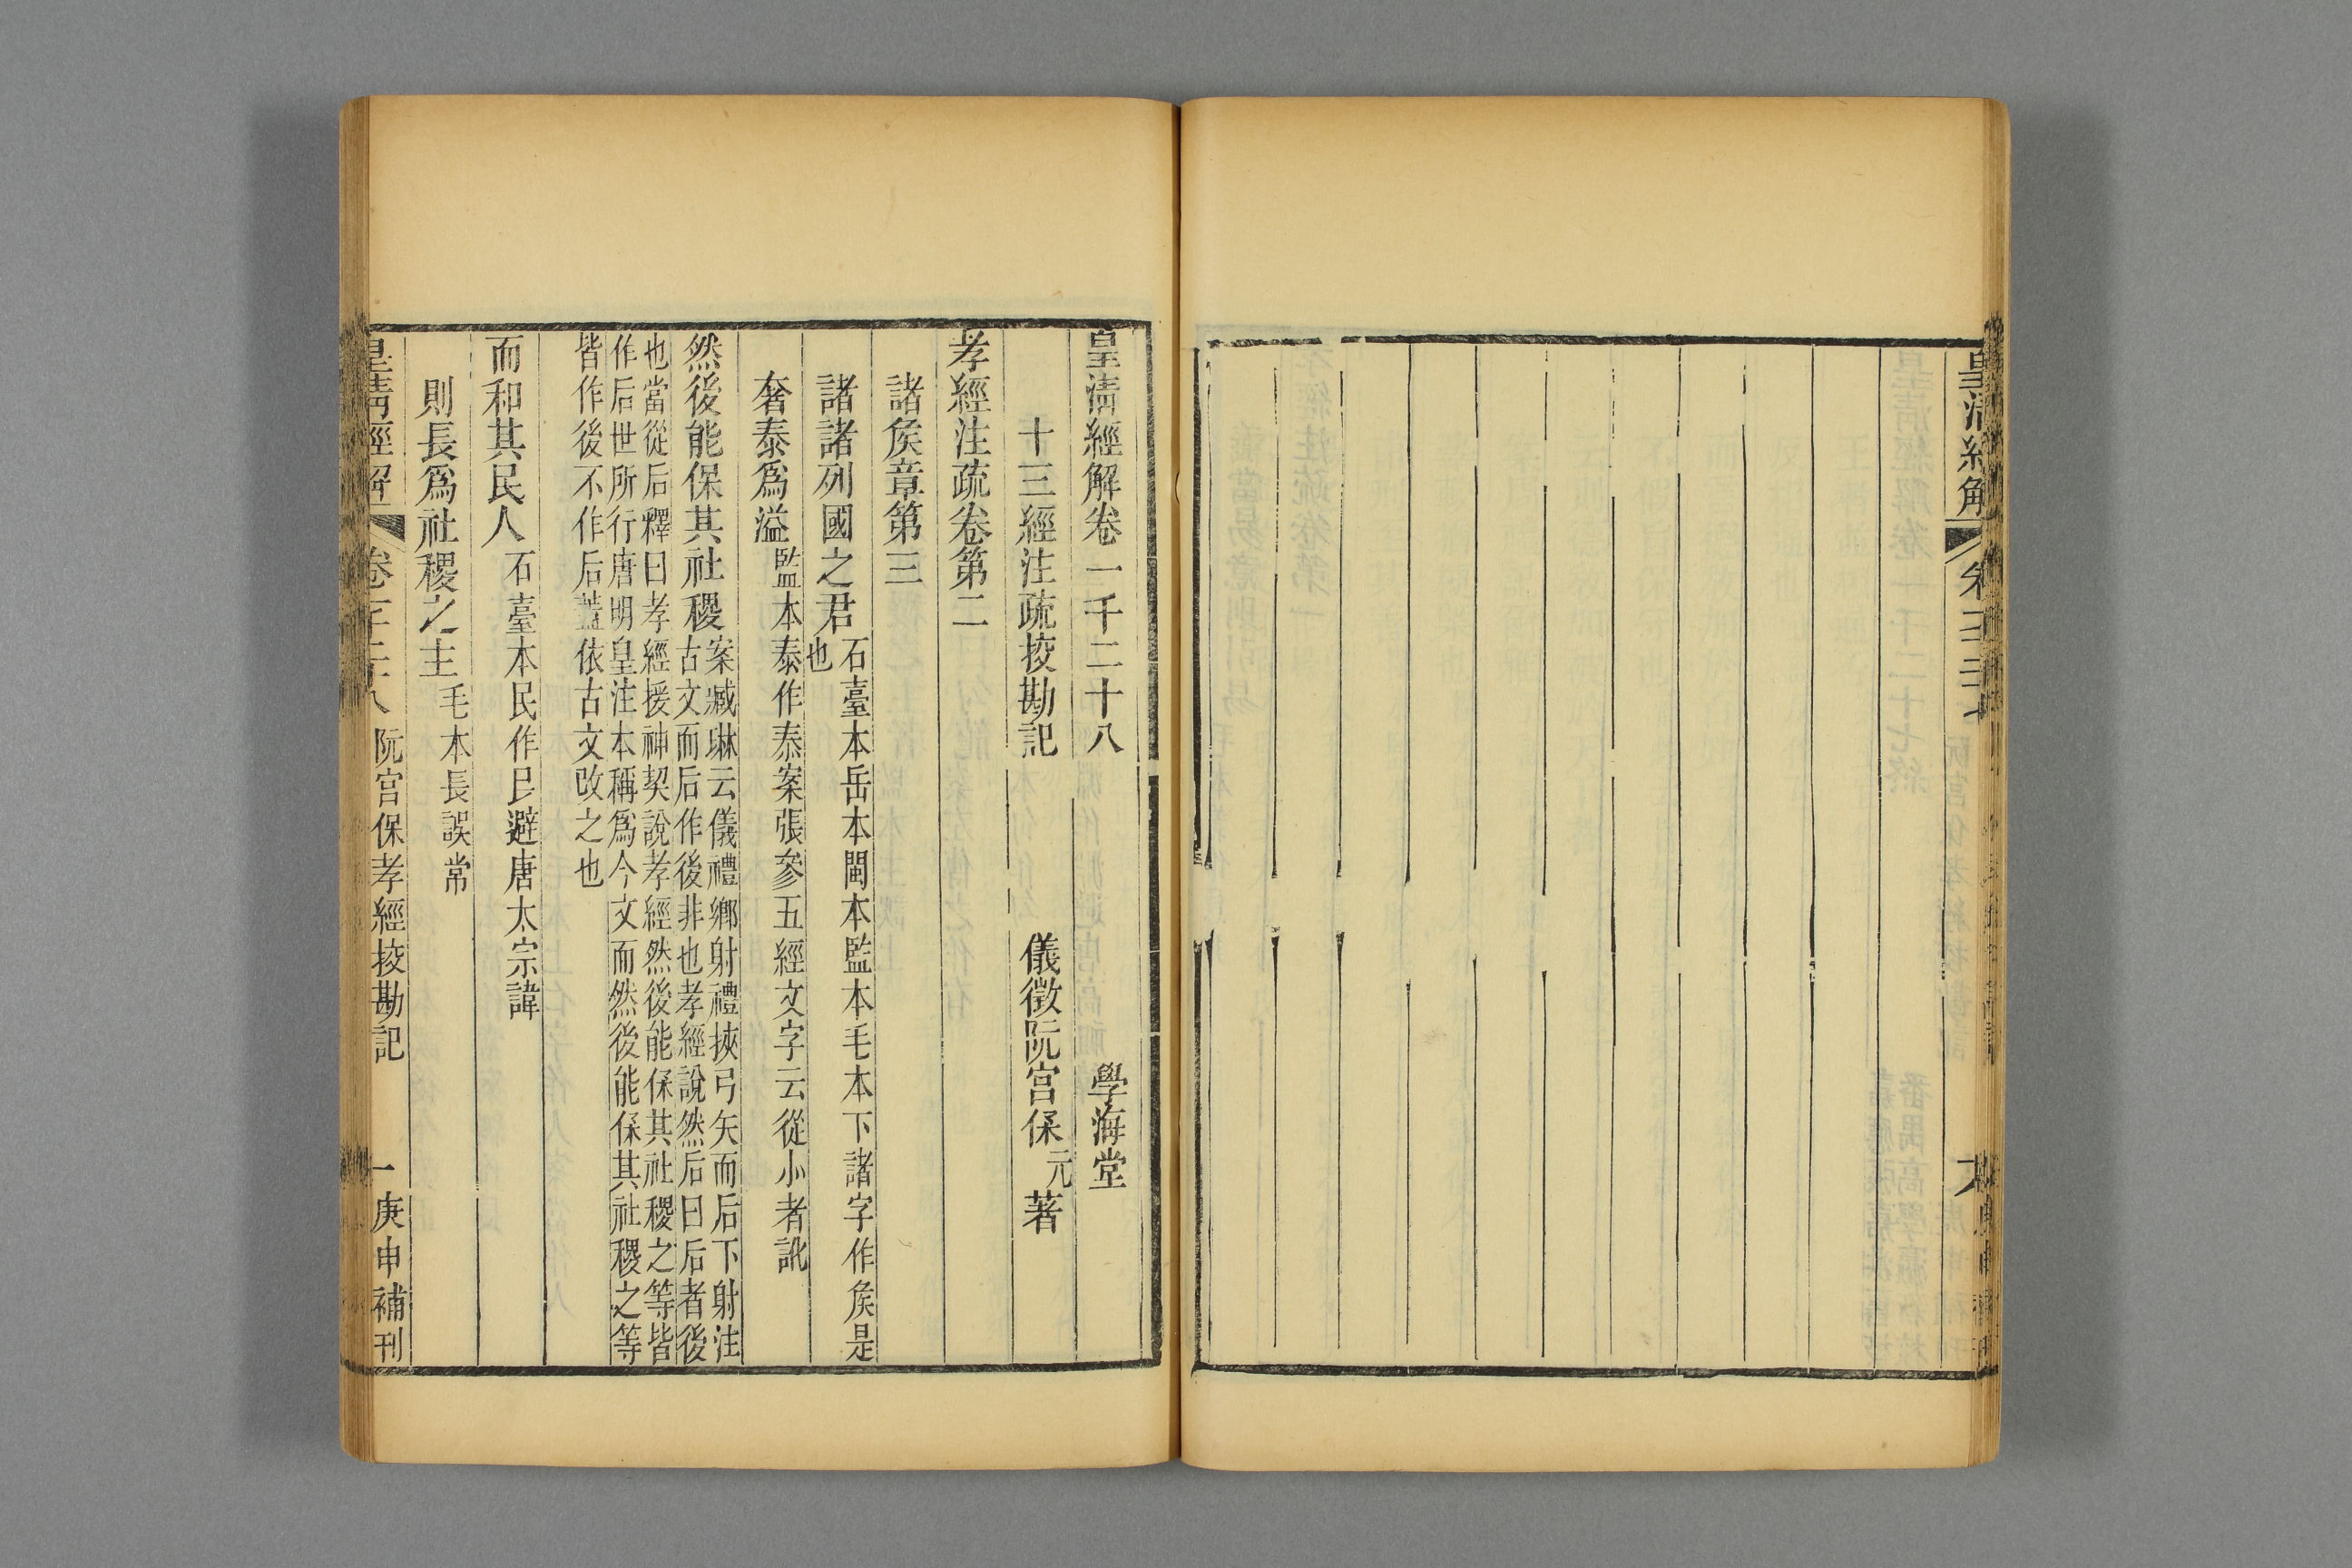 皇清經解
皇清經解卷一千二十八
學海堂
十三經注疏挍勘記
儀徵阮宮保元著
孝經注疏卷第二
諸矦章第三
諸諸列國之君石臺本岳本閩本監本毛本下諸字作矦是
也
奢泰爲溢監本泰作㤗案張參五經文字云從小者訛
然後能保其社稷案臧琳云儀禮鄉射禮挾弓矢而后下射注
古文而后作後非也孝經說然后曰后者後
也當從后釋曰孝經援神契說孝經然後能保其社稷之等皆
作后世所行唐明皇注本稱爲今文而然後能保其社稷之等
皆作後不作后蓋依古文改之也
而和其民人石臺本民作𡰱避唐太宗諱
則長爲社稷之主毛本長誤常
皇清經解
卷一千二十八
阮宮保孝經挍勘記
一
庚申補刊